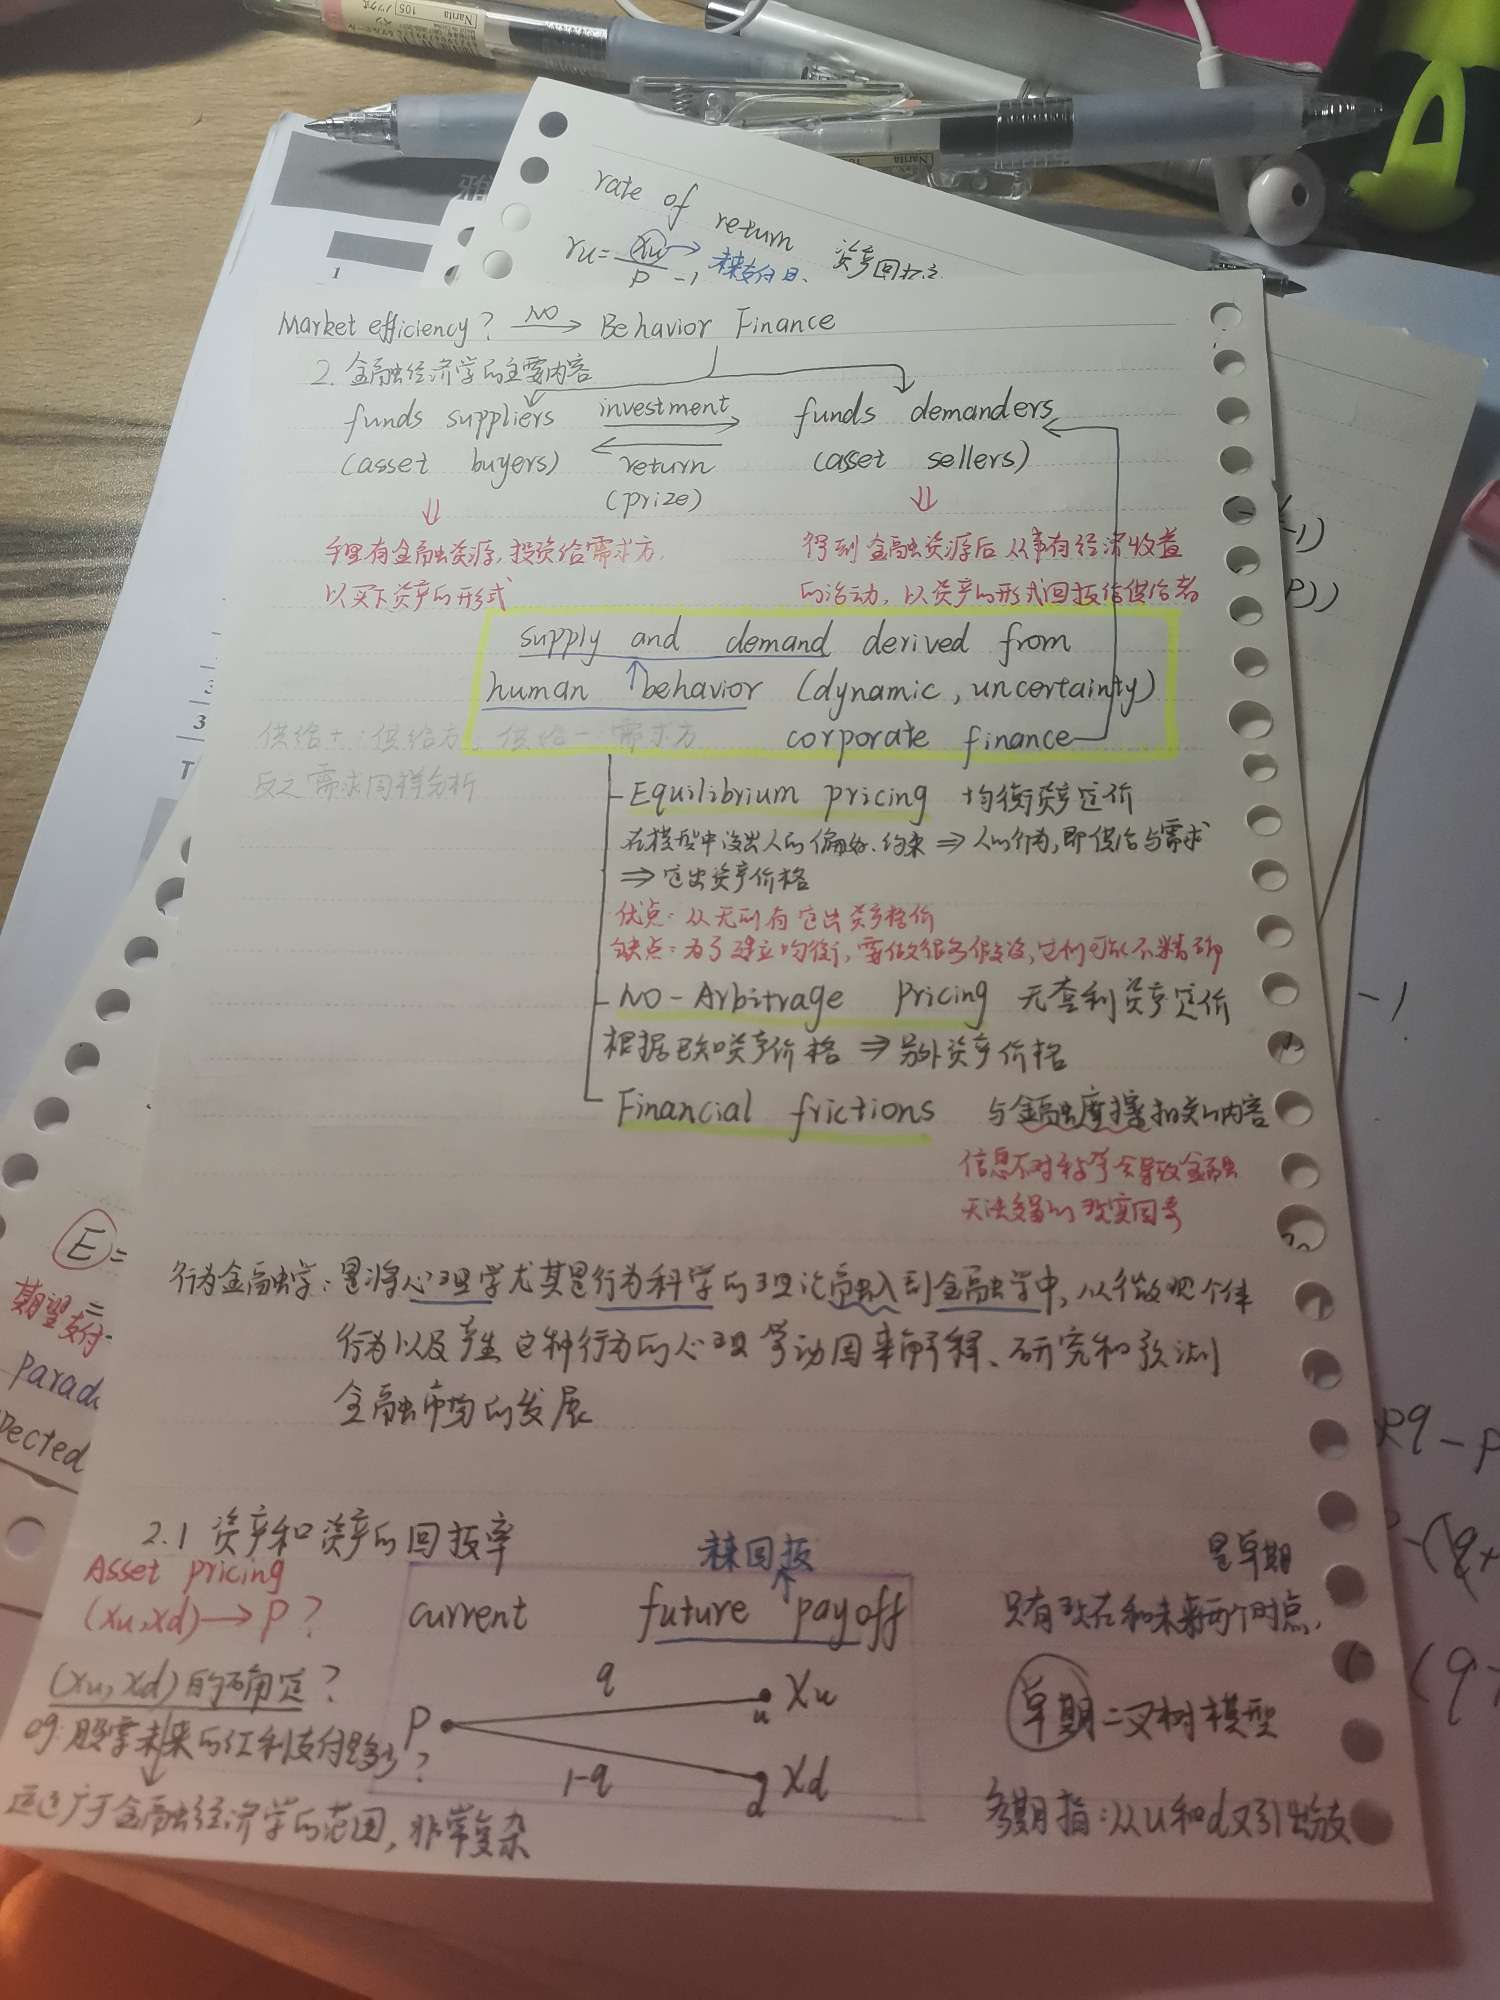 Narita
105
Narita
雅
1
3
T
rate of return 资产回报率
ru= xu/P -1 → 未来支付日.
Market efficiency? NO → Behavior Finance
2. 金融经济学的主要内容
funds suppliers investment funds demanders
(asset buyers) return (asset sellers)
(prize)
手里有金融资源,投资给需求方, 得到金融资源后从事有经济收益
以买下资产的形式 的活动, 以资产的形式回报给供给者
supply and demand derived from
human behavior (dynamic, uncertainty)
供给+:供给方, 供给-需求方 corporate finance
反之需求同样分析
Equilibrium pricing 均衡资产定价
在模型中设出人的偏好.约束 ⇒ 人的行为,即供给与需求
⇒ 定出资产价格
优点: 从无到有定出资产格价
缺点: 为了建立均衡, 要做很多假设, 它们可能不精确
NO-Arbitrage Pricing 无套利资产定价
根据已知资产价格 ⇒ 另外资产价格
Financial frictions 与金融摩擦相关的内容
信息不对称等会导致金融
无法交易的现实因素
行为金融学:是将心理学尤其是行为科学的理论融入到金融学中,从微观个体
行为以及产生这种行为的心理学动因来解释、研究和预测
金融市场的发展
2.1 资产和资产的回报率 未来回报 是早期
Asset pricing
(xu,xd)→P? current future payoff 只有现在和未来两个时点,
(xu,xd)的确定? P q u Xu 早期二叉树模型
eg.股票未来的红利支付是多少?
1-q d Xd
这已广于金融经济学的范围, 非常复杂 多期指:从u和d又引出分支
E=
期望支付
Parad
pected
-1)
P))
-1
Rq-P
-(q+
(q+